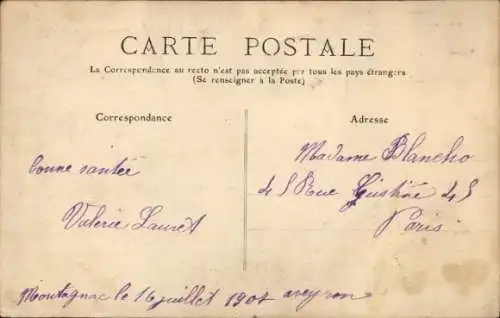 CARTE POSTALE
La Correspondance au recto n'est pas acceptée par tous les pays étrangers
(Se renseigner à la Poste)
Correspondance
Adresse
bonne santée
Valerie Lauret
Madame Blancho
45 Rue 45
Paris
Montagnac le 16 juillet aveyron